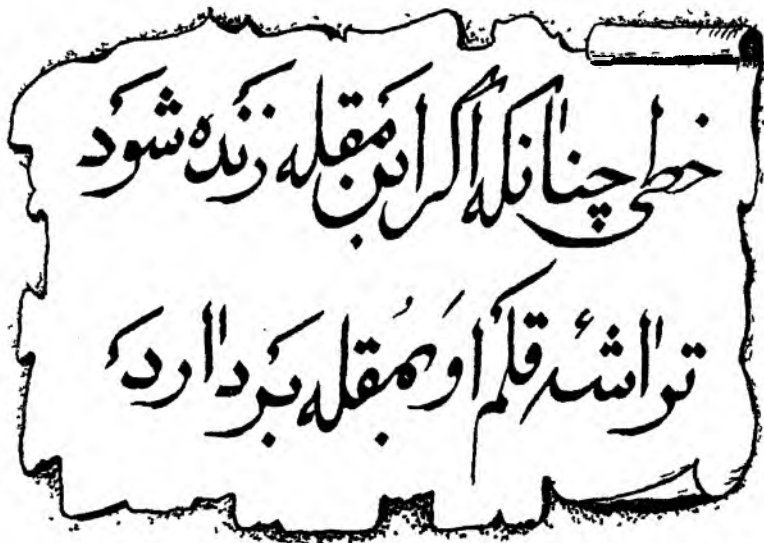 خطی چنانکه اگر ابن مقله زنده شود
تراشهٔ قلم او بمقله بردارد